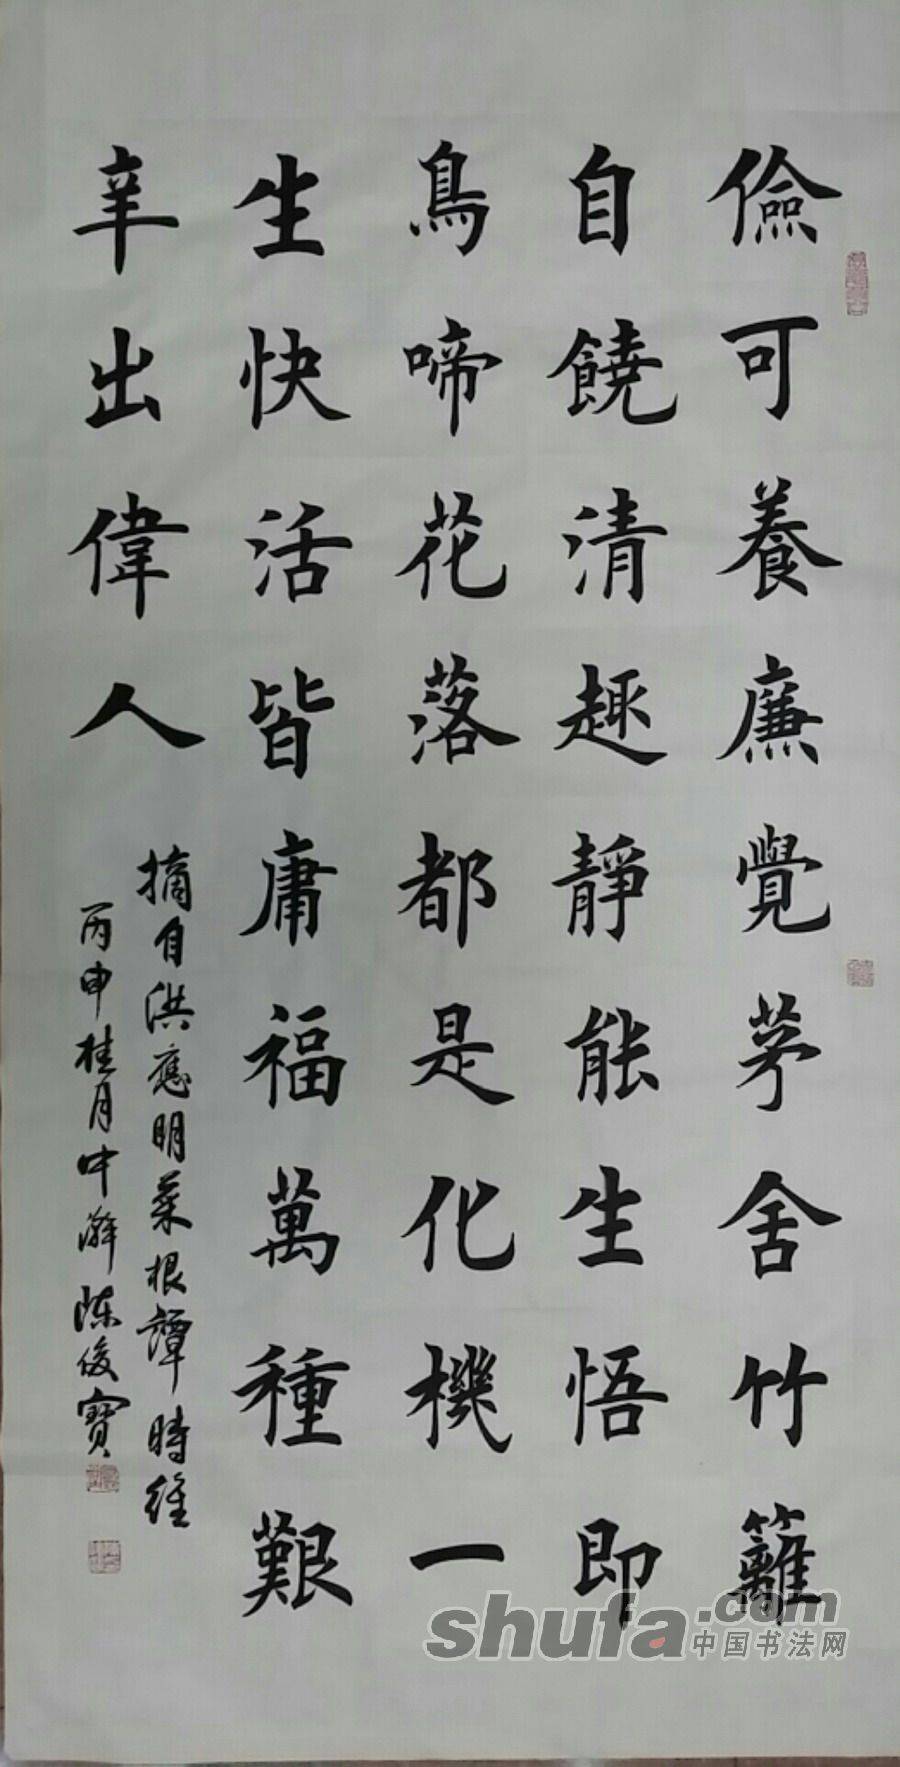 儉可養廉覺茅舍竹籬
自饒清趣靜能生悟即
鳥啼花落都是化機一
生快活皆庸福萬種艱
辛出偉人
摘自洪應明菜根譚時維
丙申桂月中澣陳俊寶
shufa.com
中国书法网